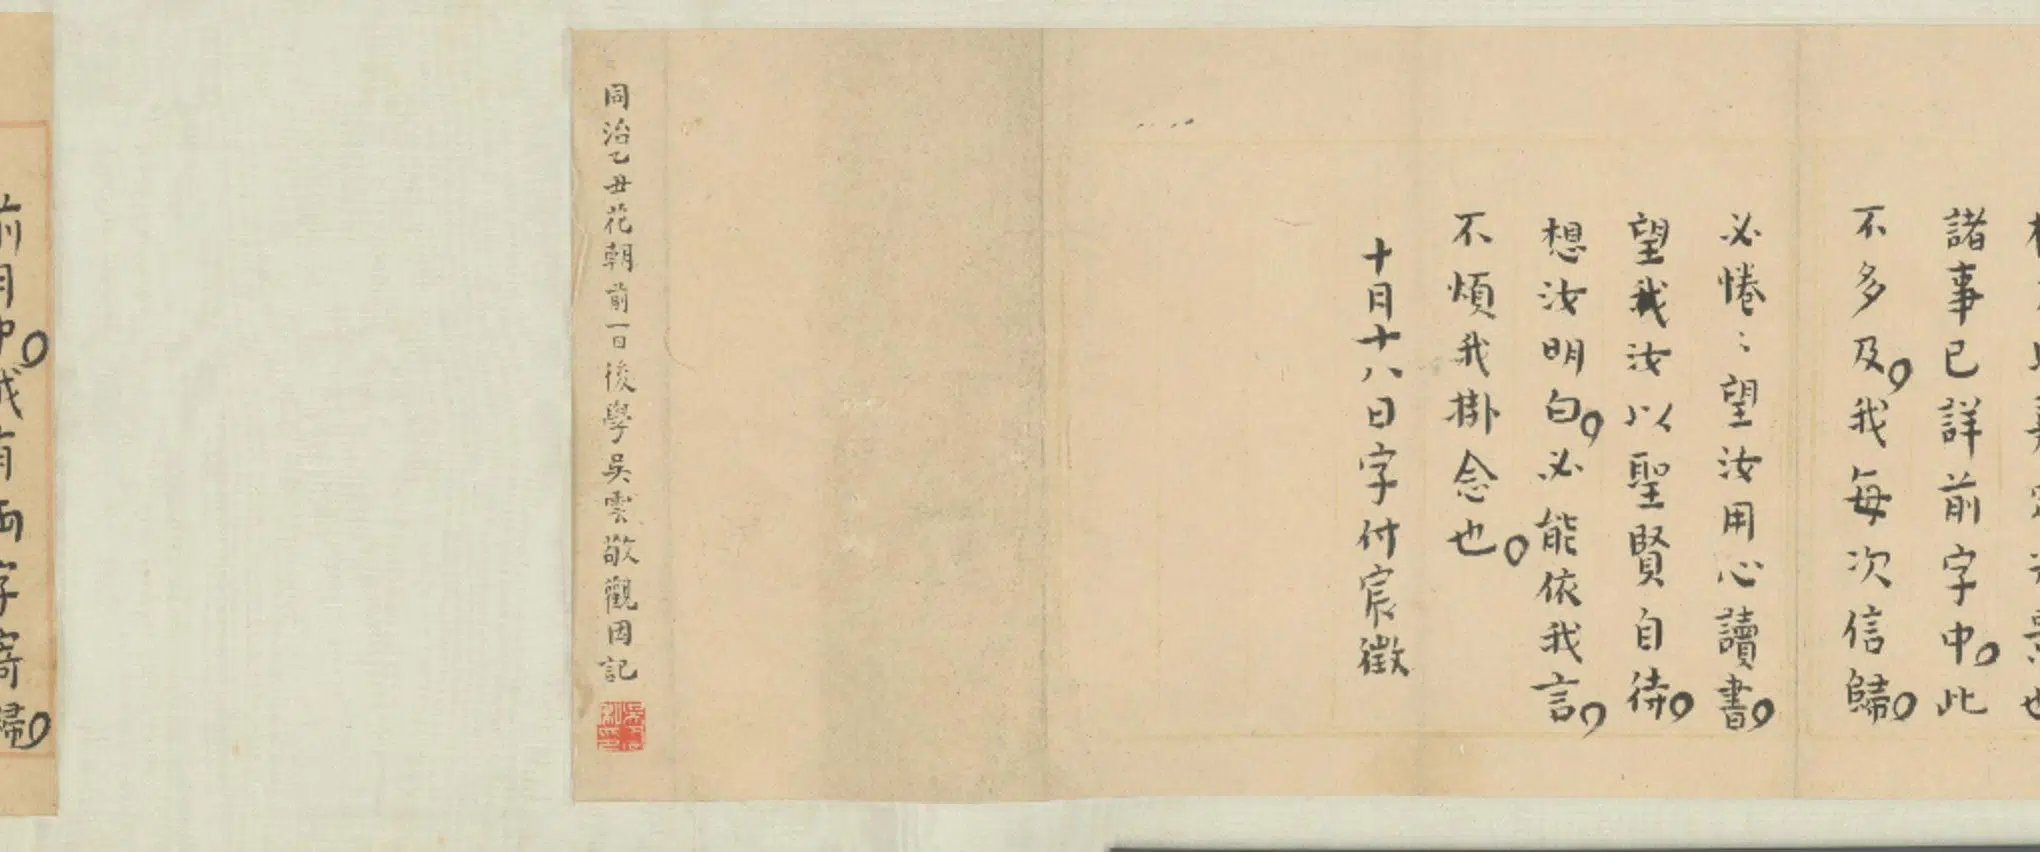 諸事已詳前字中。此
不多及。我每次信歸。
必惓〻望汝用心讀書。
望我汝以聖賢自待。
想汝明白。必能依我言。
不煩我掛念也。
十月十八日字付宸徵
同治乙丑花朝前一日後學吳雲敬觀因記
前月中。我有兩字寄歸。